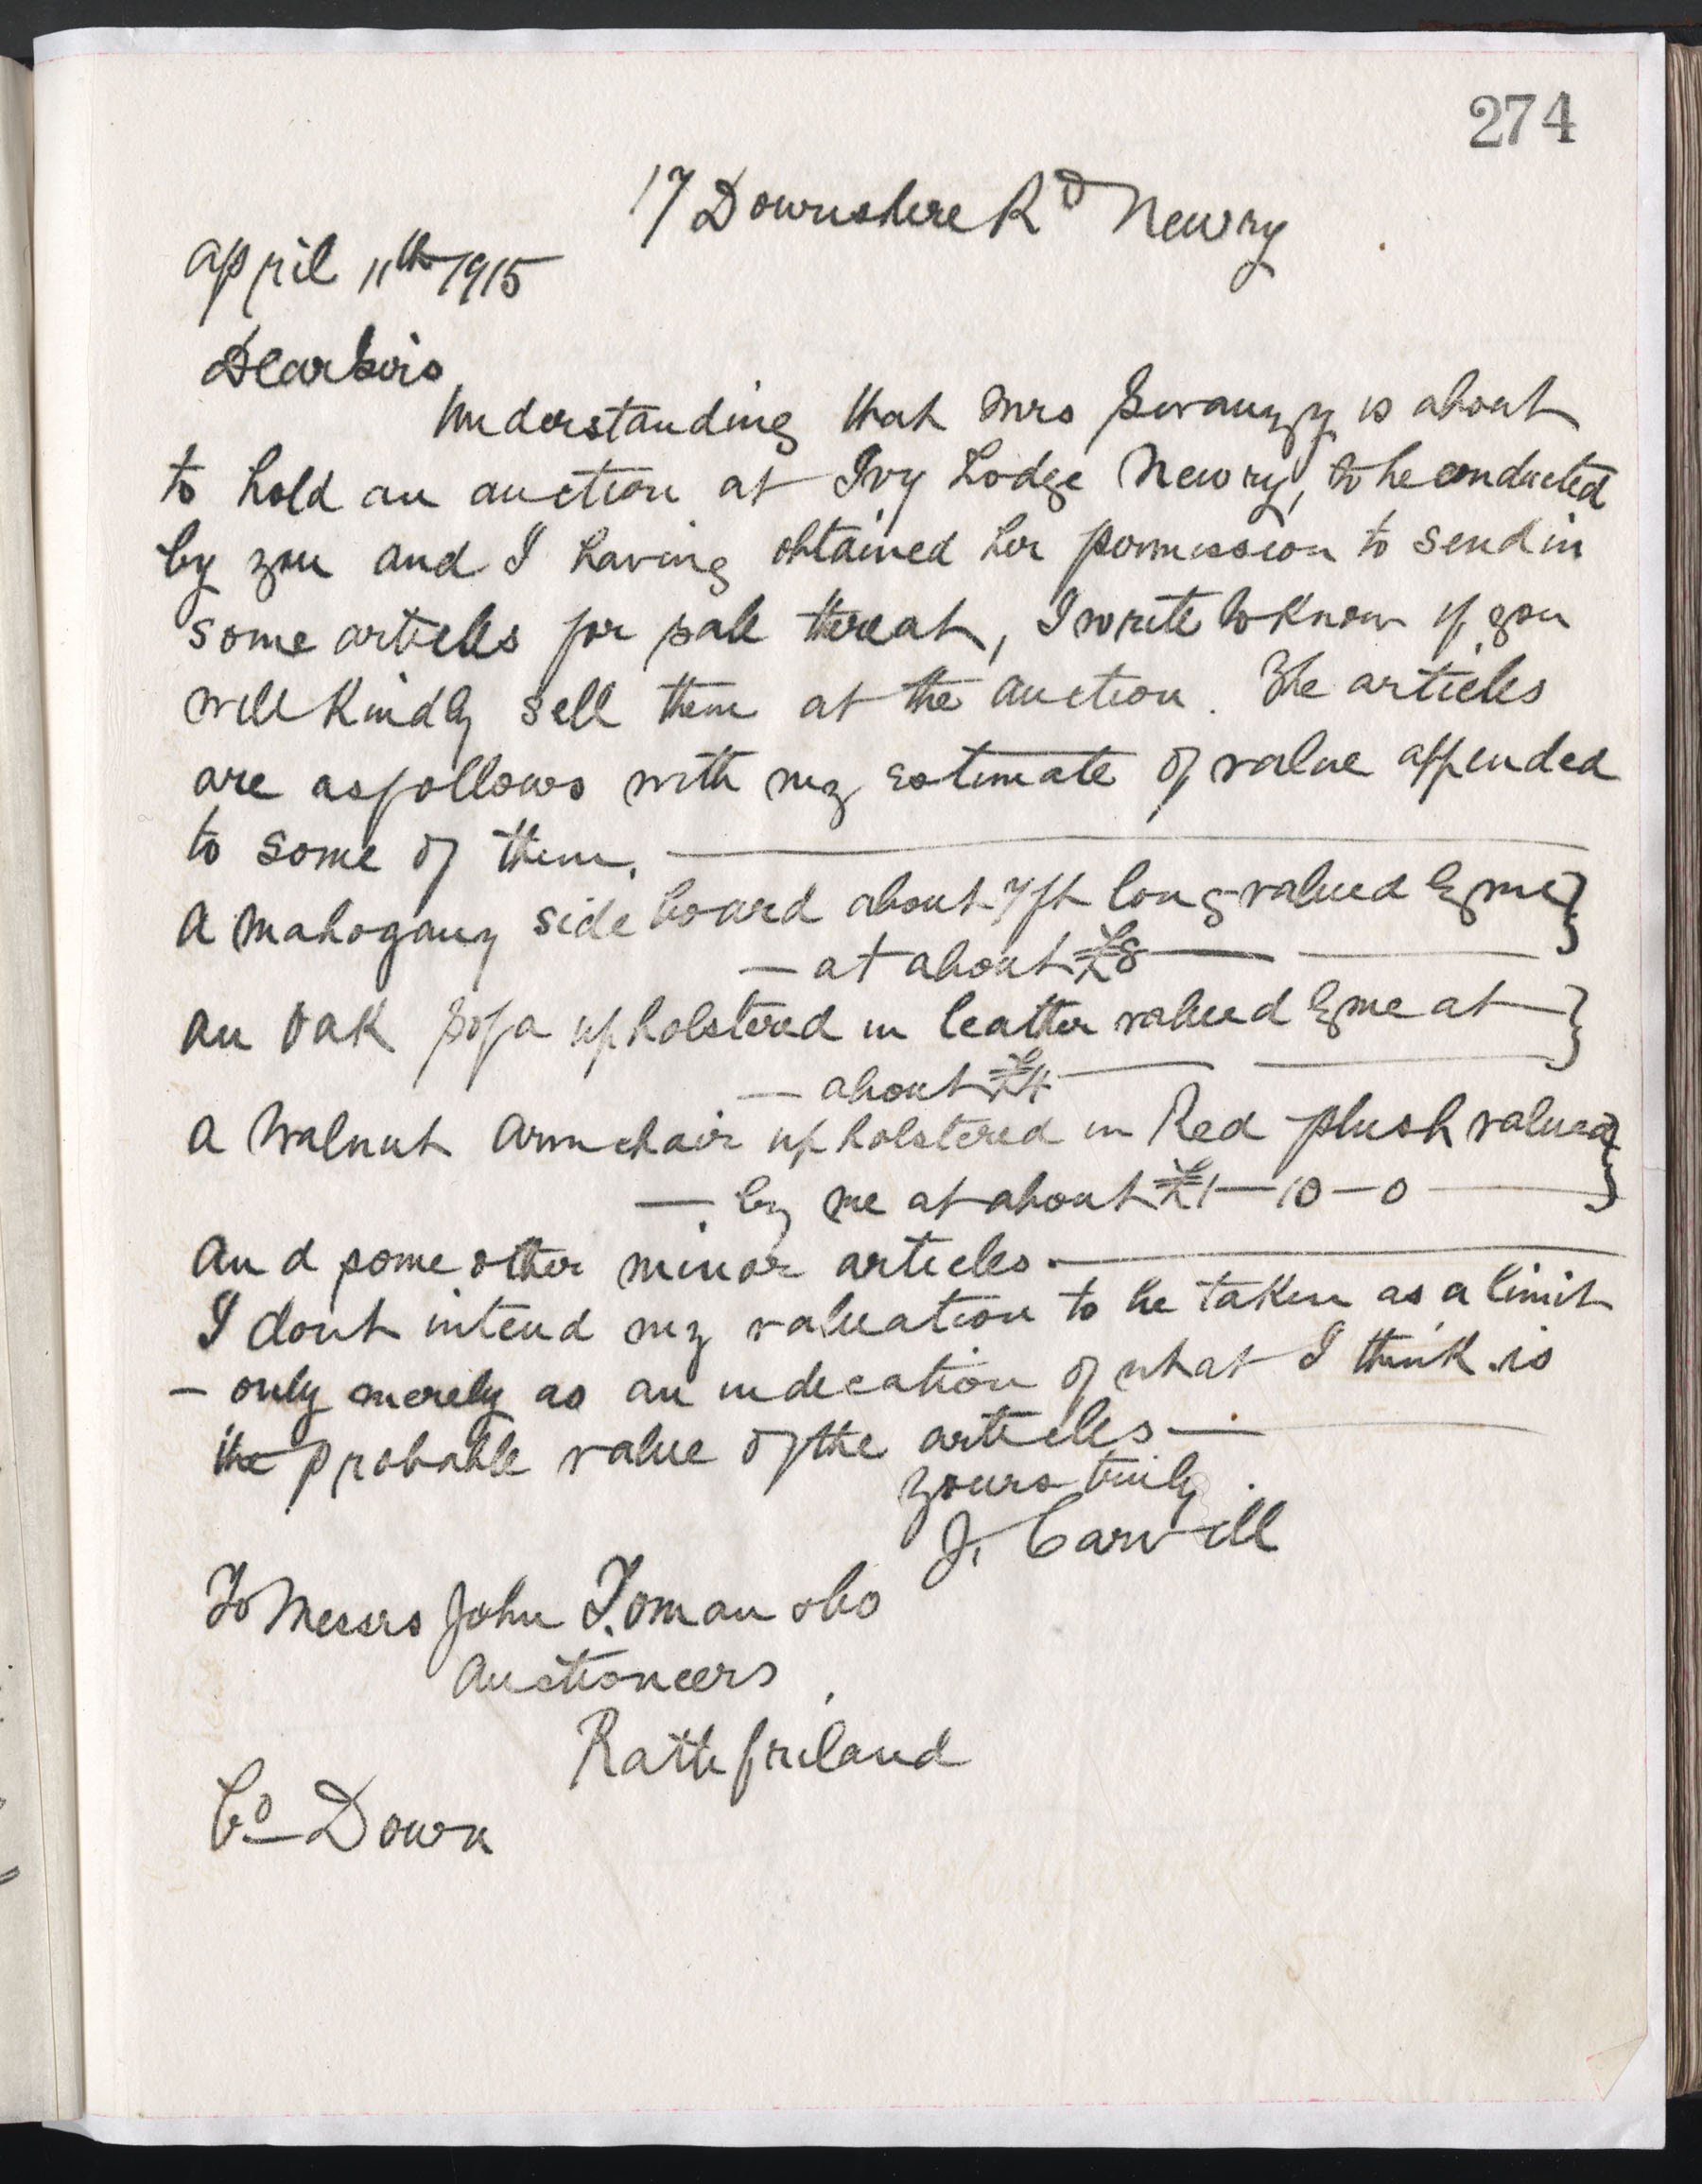 274
17 Downshire Rd Newry
April 11th 1915
Dear Sirs,
Understanding that Mrs Swanzy is about
to hold an auction at Ivy Lodge Newry, to be conducted
by you and I having obtained her permission to send in
some articles for sale thereat, I write to know if you
will kindly sell them at the auction. The articles
are as follows with my estimate of value appended
to some of them.
A mahogany side board about 7ft long valued by me }
— at about £8 —
An oak sofa upholstered in leather valued by me at }
— about £4 —
A Walnut Armchair upholstered in Red plush valued }
— by me at about £1—10—0 —
And some other minor articles.
I dont intend my valuation to be taken as a limit
— only merely as an indication of what I think is
the probable value of the articles —
Yours truly
J. Carvill
To Messrs John T. oman &Co
Auctioneers
Rathfriland
Co Down